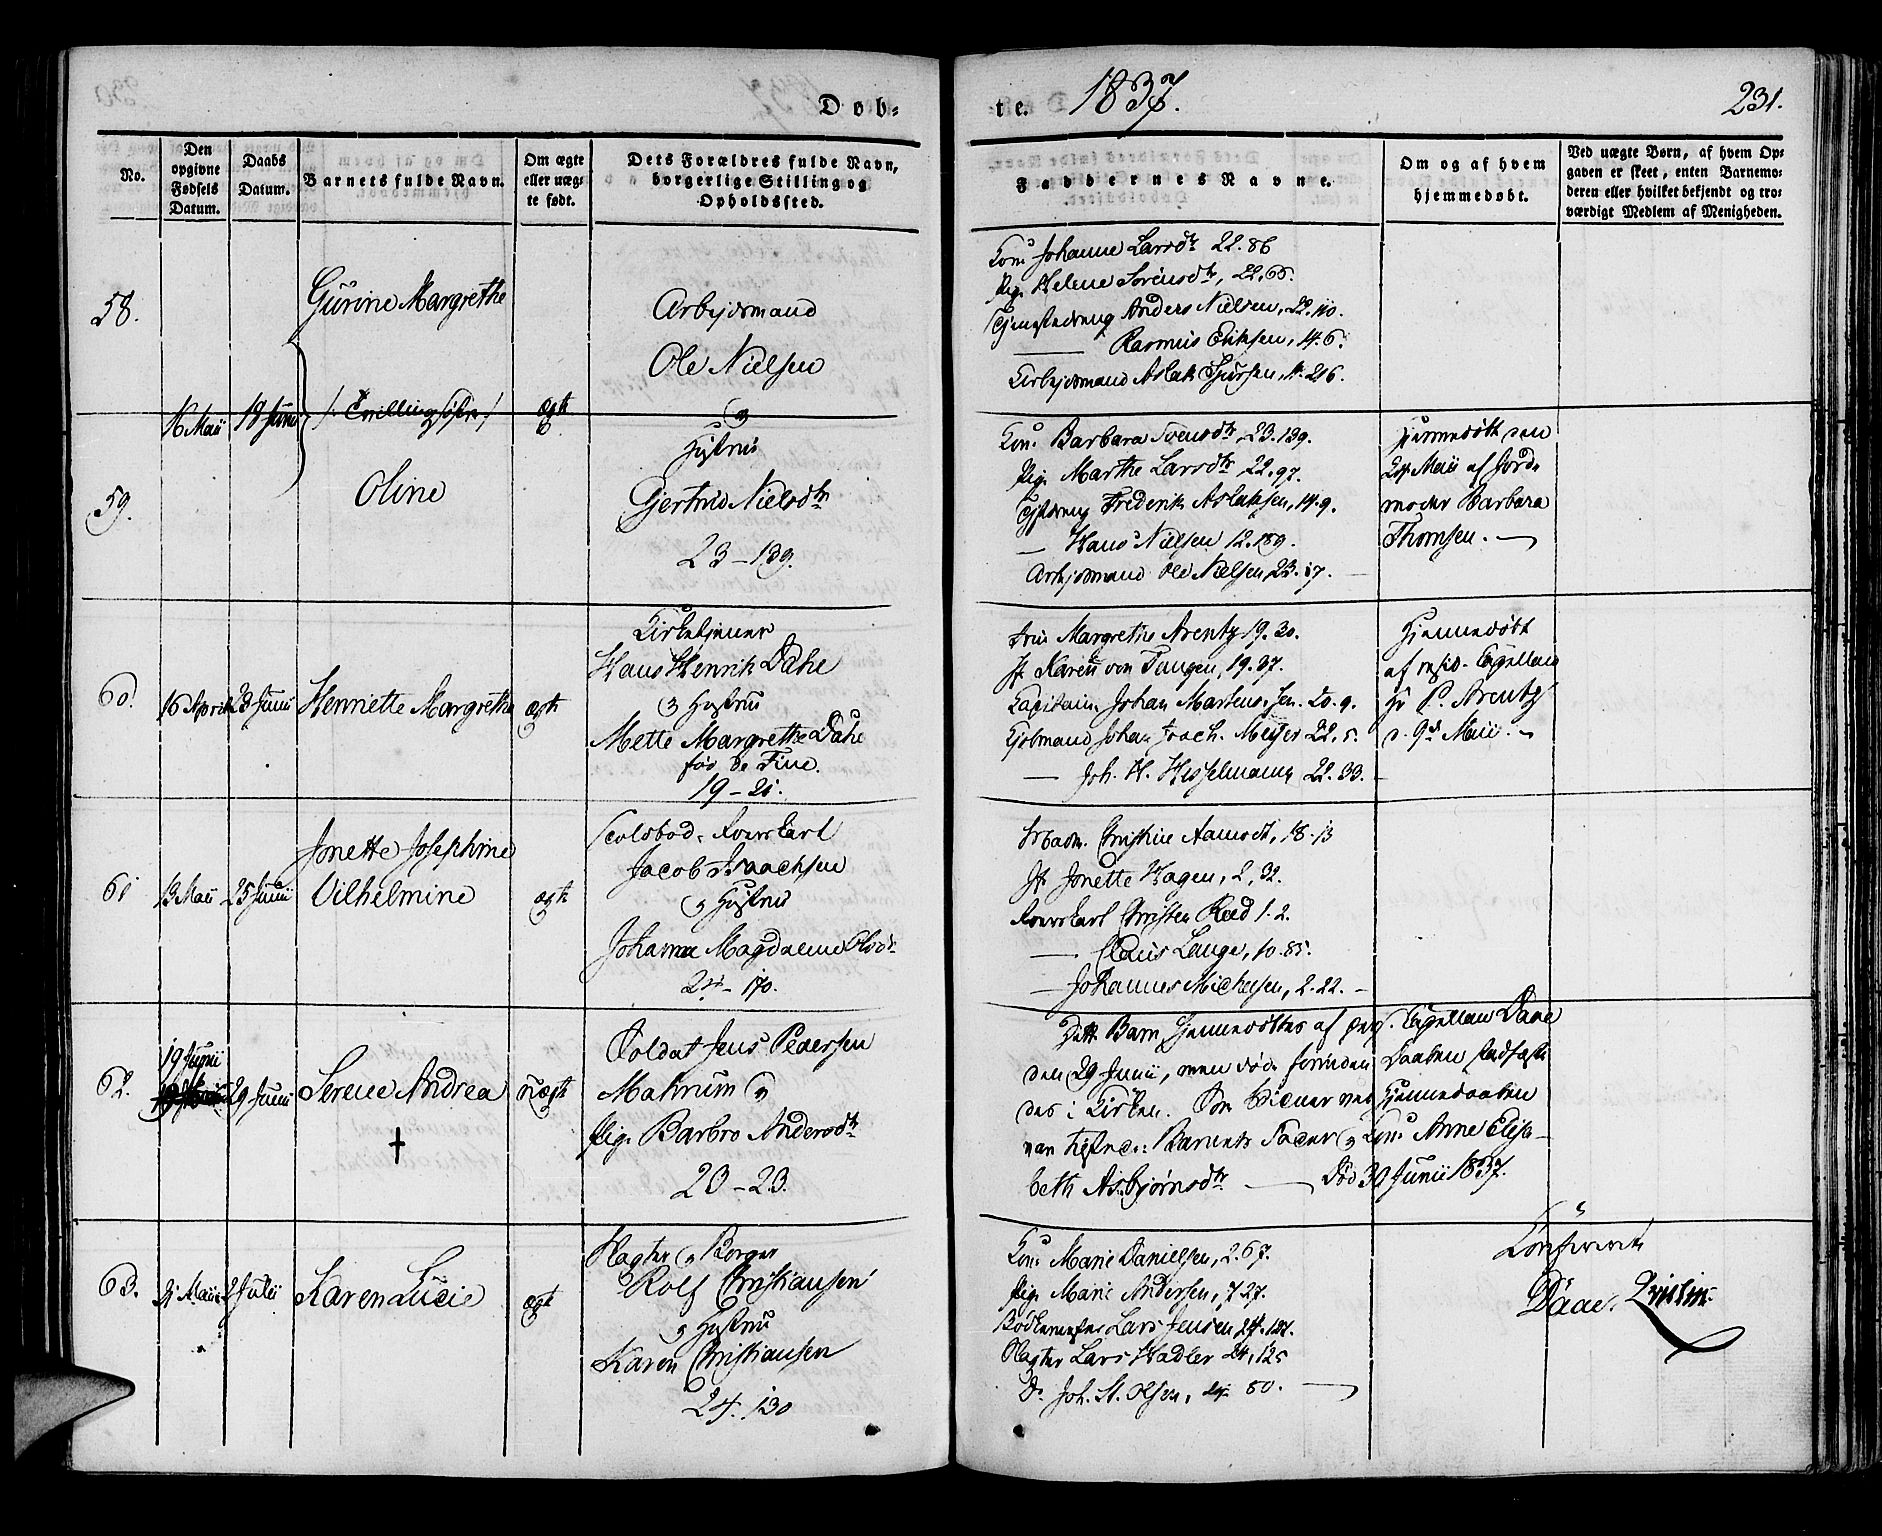 Døb-
te. 1837.
231.
No.
Den opgivne Fødsels Datum.
Daabs Datum.
Barnets fulde Navn.
Om ægte eller uæg- te født.
Dets Forældres fulde Navn, borgerlige Stilling og Opholdssted.
Faddernes Navne.
Om og af hvem hjemmedøbt.
Ved uægte Børn, af hvem Op- gaven er skeet, enten Barnemo- deren eller hvilket bekjendt og tro- værdigt Medlem af Menigheden.
58.
16 Maii
18 Junii
Gurine Margrethe
/: Tvillingsøstre :/
ægte
Arbejdsmand
Ole Nielsen
og
Hustrue
Gjertrud Nielsdtr
23-139.
Kone Johanne Larsdtr 22.86
Pige Helene Sørensdtr, 22.65.
Tjenestedreng Anders Nielsen, 22.110.
Rasmus Eriksen, 14.6.
Arbejdsmand Aslak Sjursen, 14.216.
59.
Oline
Kone Barbara Svensdtr, 23.139.
Pige Marthe Larsdtr 22.97.
Tjdreng Frederik Aslaksen, 14.9.
Hans Nielsen 12.189.
Arbejdsmand Ole Nielsen 23.17.
Hjemmedøbt den
Maii af Jord-
moder Barbara
Thomsen.
60.
16 April
28 Junii
Henriette Margrethe
ægte
Kirketjener
Hans Henrik Dahe
og Hustrue
Mette Margrethe Dahe
fød de Fine.
19-21.
Frue Margrethe Arentz 19.30.
Jf. Karen von Tangen, 19.37.
Capitain Johan Martens, sen. 20.9.
Kjøbmand Johan Joach. Meyer 22.5.
Joh. H. Hesselmann 22.33.
Hjemmedøbt
af resid. Capellan
Hr P. Arentz
d. 9de Maii.
61
13 Maii
25 Junii
Jonette Josephine
Vilhelmine
ægte
Jacob Isaachsen
og Hustrue
Johanna Magdalene Olsdr
24-170.
Madm. Christine Aamodt, 18.13
Jf. Jonette Hagen, 2, 32.
Christen Rød 1.2.
Claus Lange, 10.85.
Johannes Michelsen, 2.22.
62.
19 Junii
29 Junii
Serene Andrea
†
Uægte
Soldat Jens Pedersen
Mahrum og
Pige Barbro Andersdtr
23-23.
Dette Barn hjemmedøbtes af pers. Capellan Daae
den 29 Junii, men døde forinden Daaben stadfæste-
des i Kirken. Som Vidner ved Hjemmedaaben
var tilstede: Barnets Fader og Kone Anne Elisa-
beth Asbjørnsdtr. Død 30 Junii 1837.
63.
21 Maii
2 Julii
Karen Lucie
ægte
Slagter og Borger
Rolf Christiansen
og Hustrue
Karen Christiansen
24.130
Kone Marie Danielsen, 2.67.
Pige Marie Andersen, 7.27.
Bødkermester Lars Jensen 24.121.
Slagter Lars Hadler 24,125
Do Joh. St. Olsen, 24. 80.
Confererit
Daae.